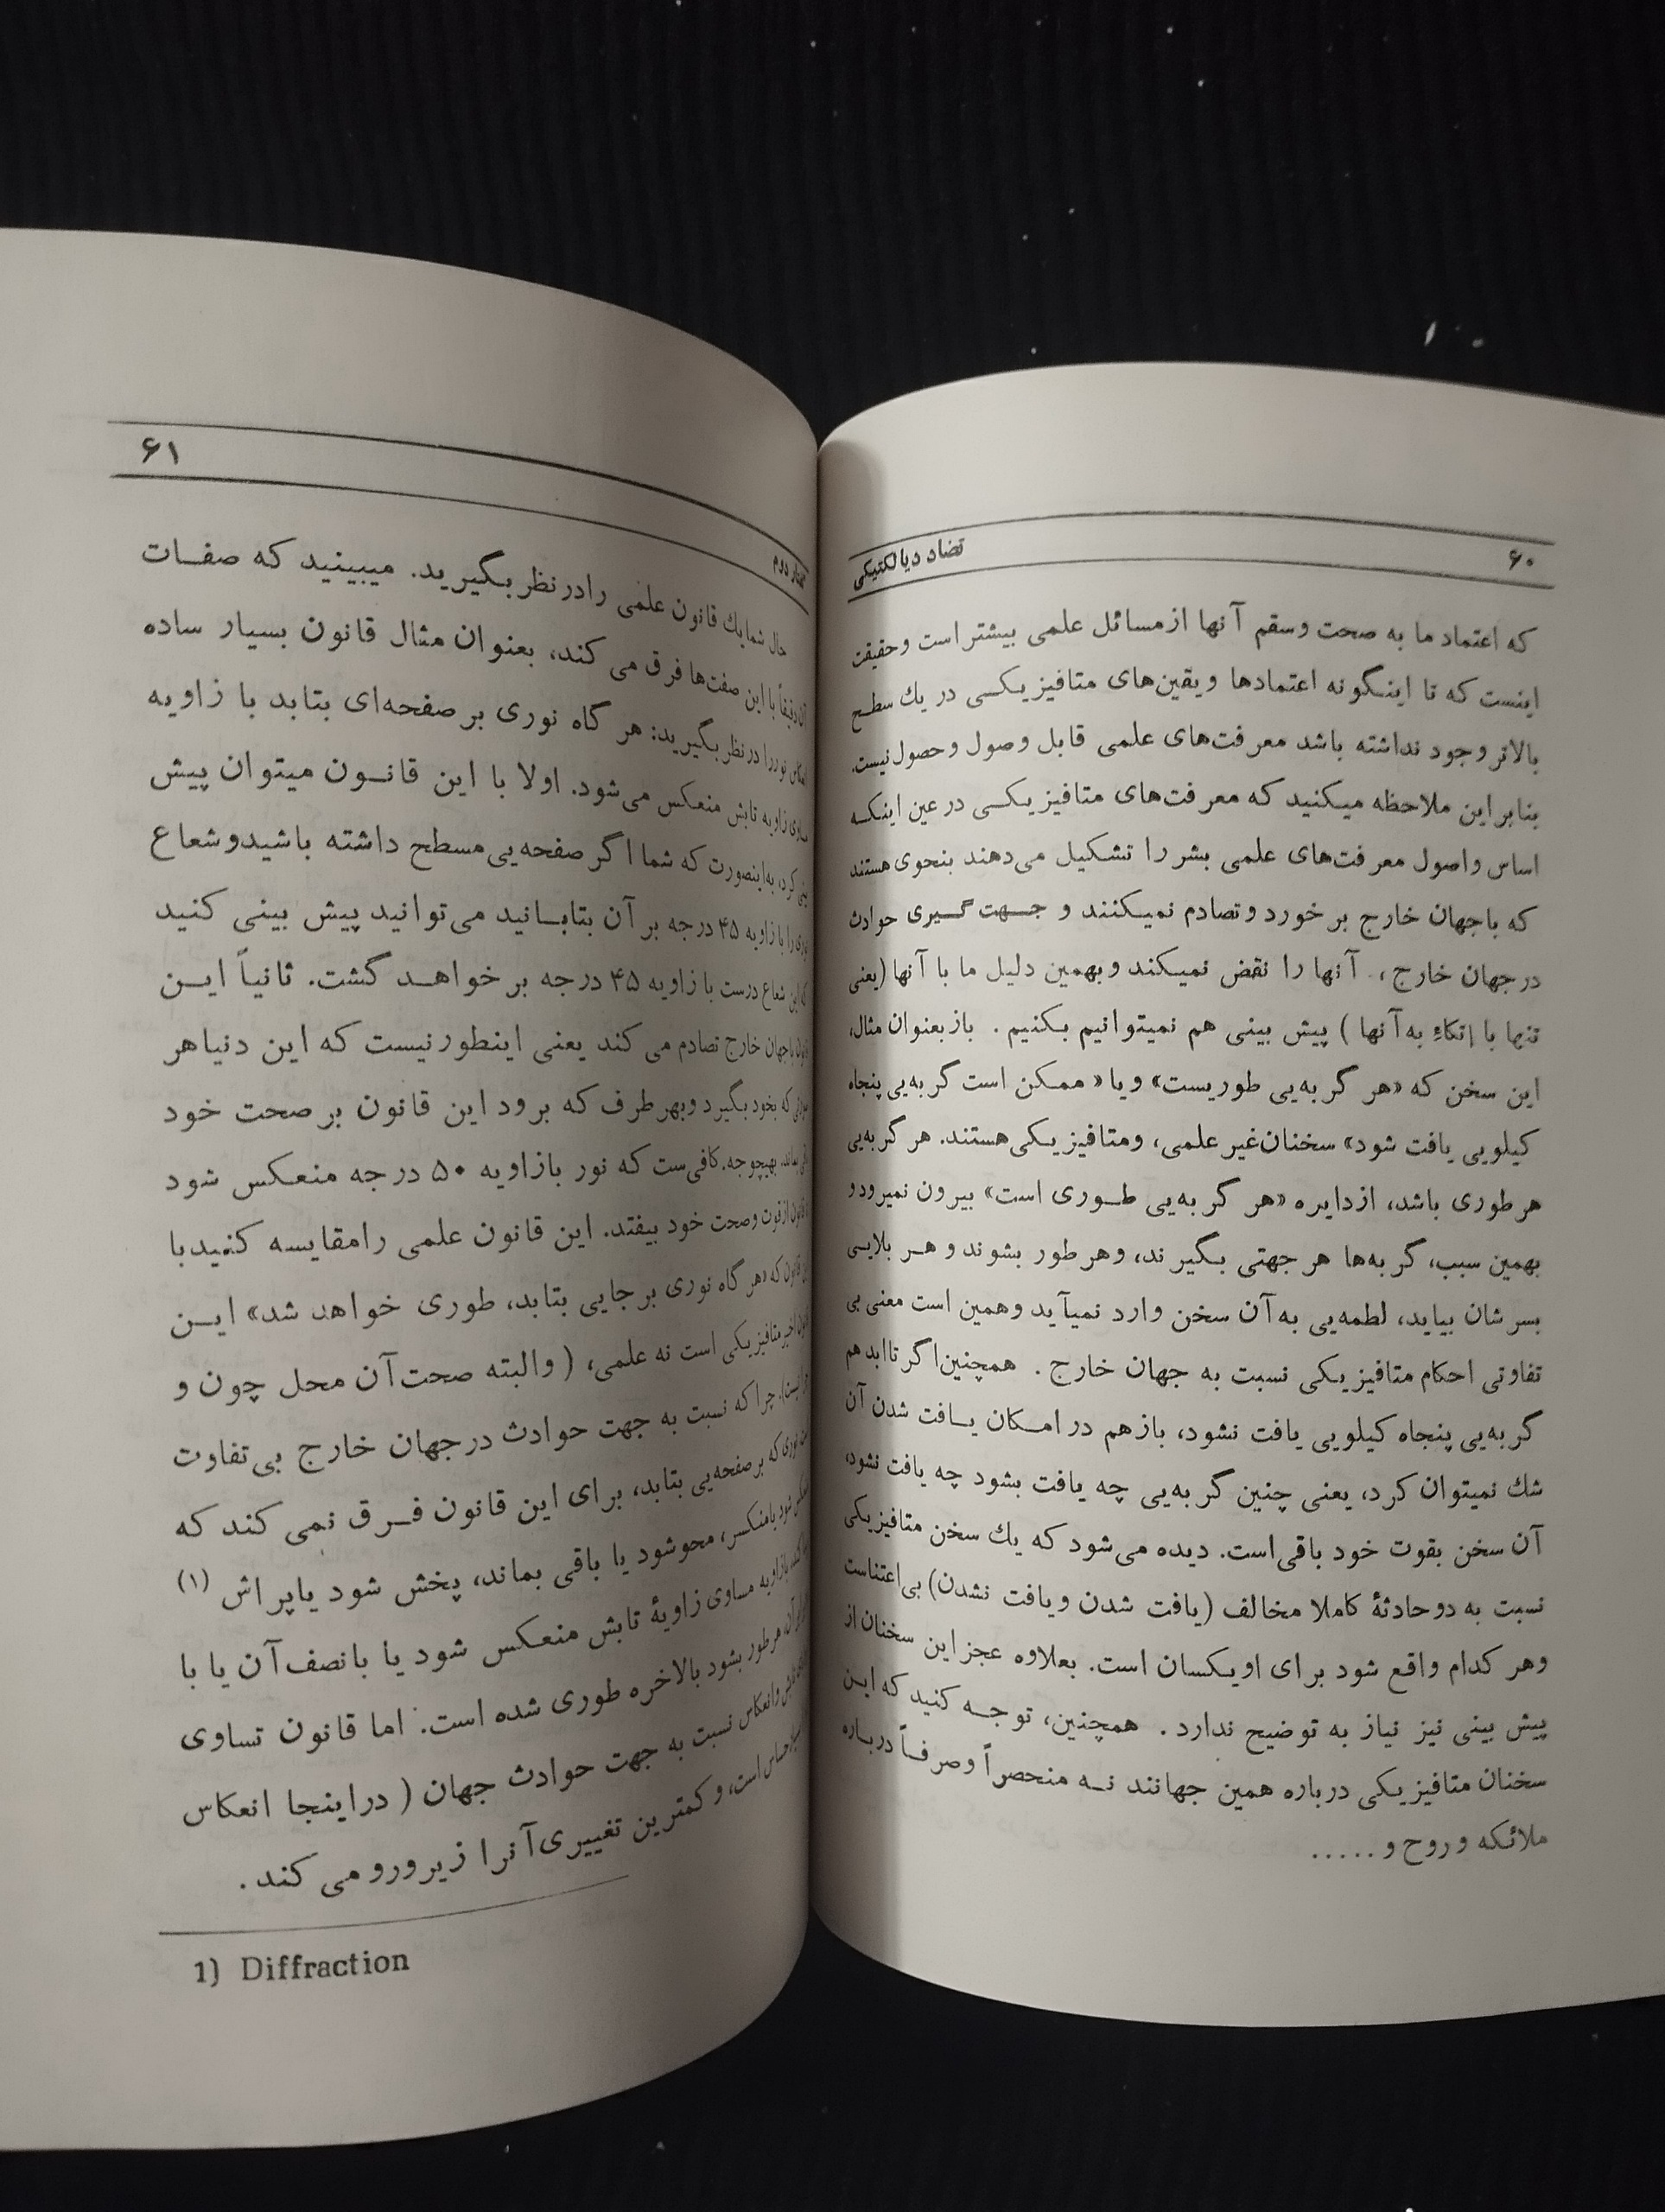 ۶۰
تضاد دیالکتیکی
که اعتماد ما به صحت وسقم آنها ازمسائل علمی بیشتر است وحقیقت
اینست که تا اینگونه اعتمادها ویقین‌های متافیزیکی در یك سطح
بالاتر وجود نداشته باشد معرفت‌های علمی قابل وصول وحصول نیست.
بنابراین ملاحظه میکنید که معرفت‌های متافیزیکی در عین اینکه
اساس واصول معرفت‌های علمی بشر را تشکیل می‌دهند بنحوی هستند
که باجهان خارج برخورد وتصادم نمیکنند و جهت گیری حوادث
درجهان خارج، آنها را نقض نمیکند وبهمین دلیل ما با آنها (یعنی
تنها با اتکاءِ به آنها) پیش بینی هم نمیتوانیم بکنیم. بازبعنوان مثال،
این سخن که «هر گربه‌یی طوریست» ویا «ممکن است گربه‌یی پنجاه
کیلویی یافت شود» سخنان‌غیرعلمی، ومتافیزیکی‌هستند. هر گربه‌یی
هرطوری باشد، ازدایره «هر گربه‌یی طوری است» بیرون نمیرودو
بهمین سبب، گربه‌ها هر جهتی بگیرند، وهرطور بشوند و هر بلایی
بسرشان بیاید، لطمه‌یی به آن سخن وارد نمیآید وهمین است معنی بی
تفاوتی احکام متافیزیکی نسبت به جهان خارج. همچنین‌اگر تاابدهم
گربه‌یی پنجاه کیلویی یافت نشود، بازهم در امکان یافت شدن آن
شك نمیتوان کرد، یعنی چنین گربه‌یی چه یافت بشود چه یافت نشود،
آن سخن بقوت خود باقی‌است. دیده می‌شود که یك سخن متافیزیکی
نسبت به دوحادثهٔ کاملا مخالف (یافت شدن ویافت نشدن) بی‌اعتناست
وهر کدام واقع شود برای اویکسان است. بعلاوه عجز این سخنان از
پیش بینی نیز نیاز به توضیح ندارد. همچنین، توجه کنید که این
سخنان متافیزیکی درباره همین جهانند نه منحصراً وصرفاً درباره
ملائکه وروح و.....
۶۱
دوم
حال شمایك قانون علمی رادرنظربگیرید. میبینید که صفات
آن دقیقاً با این صفت‌ها فرق می کند، بعنوان مثال قانون بسیار ساده
انعکاس نوررا درنظربگیرید: هر گاه نوری برصفحه‌ای بتابد با زاویه
مساوی زاویه تابش منعکس می‌شود. اولا با این قانون میتوان پیش
بینی کرد، به‌اینصورت که شما اگر صفحه‌یی مسطح داشته باشیدوشعاع
نوری را با زاویه ۴۵ درجه بر آن بتابانید می‌توانید پیش بینی کنید
که این شعاع درست با زاویه ۴۵ درجه بر خواهد گشت. ثانیاً این
قانون باجهان خارج تصادم می کند یعنی اینطورنیست که این دنیاهر
صورتی که بخود بگیرد وبهرطرف که برود این قانون برصحت خود
باقی بماند، بهیچوجه. کافی‌ست که نور بازاویه ۵۰ درجه منعکس شود
قانون ازقوت وصحت خود بیفتد. این قانون علمی رامقایسه کنیدبا
قانون که «هرگاه نوری برجایی بتابد، طوری خواهد شد» این
اخیرمتافیزیکی است نه علمی، (والبته صحت‌آن محل چون و
چرانیست). چراکه نسبت به جهت حوادث درجهان خارج بی‌تفاوت
نوری که برصفحه‌یی بتابد، برای این قانون فرق نمی کند که
منعکس شود یامنکسر، محوشود یا باقی بماند، پخش شود یاپراش (۱)
کند، بازاویه مساوی زاویهٔ تابش منعکس شود یا بانصف‌آن یا با
آن، هرطور بشود بالاخره طوری شده است. اما قانون تساوی
تابش وانعکاس نسبت به جهت حوادث جهان (دراینجا انعکاس
حساس است، و کمترین تغییری‌آنرا زیرورو می کند.
1) Diffraction